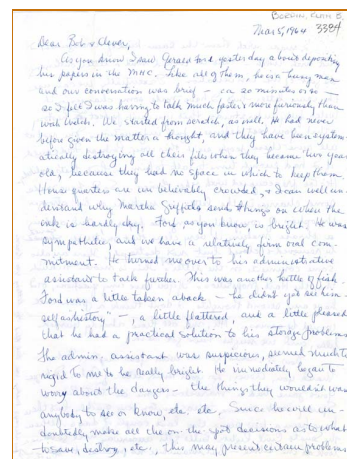 BORDIN, RUTH B.
3384
Mar 5, 1964
Dear Bob & Clever,
As you know I saw Gerald Ford yesterday about depositing
his papers in the MHC. Like all of them, he is a busy man
and our conversation was brief - ca 20 minutes or so -
so I feel I was having to talk much faster & more furiously than
with Welch. We started from scratch, as well. He had never
before given the matter a thought, and they have been system-
atically destroying all their files when they became two years
old, because they had no space in which to keep them.
House quarters are unbelievably crowded, so I can well un-
derstand why Martha Griffiths sends things on when the
ink is hardly dry. Ford, as you know, is bright. He was
sympathetic, and we have a relatively firm oral com-
mitment. He turned me over to his administrative
assistant to talk further. This was another kettle of fish.
Ford was a little taken aback - he didn't yet see him-
self as "history" -, a little flattered, and a little pleased
that he had a practical solution to his storage problems.
The admin. assistant was suspicious, seemed much too
rigid to me to be really bright. He immediately began to
worry about the dangers - the things they wouldn't want
anybody to see or know, etc. etc. Since he will un-
doubtedly make all the on-the-spot decisions as to what
to save, destroy, etc., this may present certain problems